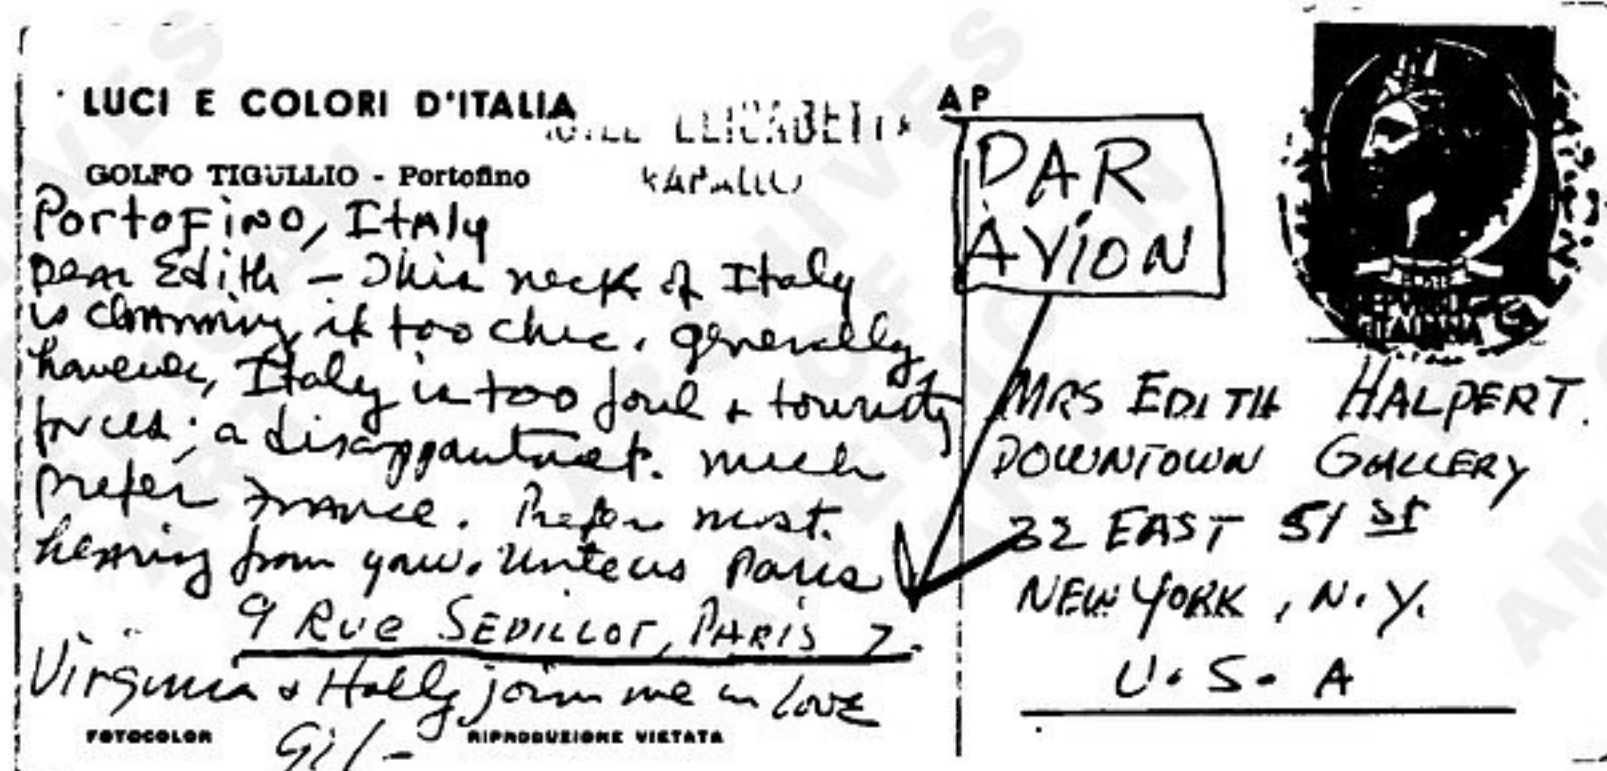 LUCI E COLORI D'ITALIA
GOLFO TIGULLIO - Portofino
RAPALLO
Portofino, Italy
Dear Edith - This neck of Italy
is charming, if too chic. Generally
however, Italy is too foul & touristy
prices; a disappointment. Much
prefer France. Prefer most.
hearing from you. Write us Paris
9 Rue SEDILLOT, PARIS 7.
Virginia & Holly join me in love
Gil-
FOTOCOLOR RIPRODUZIONE VIETATA
AP
PAR
AVION
MRS EDITH HALPERT.
DOWNTOWN GALLERY
32 EAST 51 ST
NEW YORK, N.Y.
U.S.A